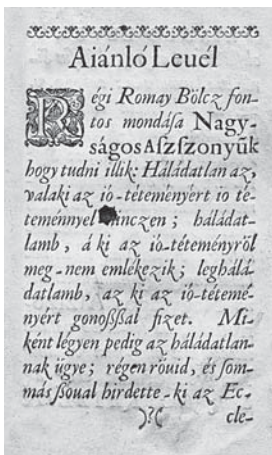 Aiánló Leuél
Régi Romay Bölcz fon-
tos mondáſa Nagy-
ságos Aſzſzonyűk
hogy tudni illik: Háládatlan az,
valaki az io-tétemėnyért io té-
teménnyel ninczen; háládat-
lamb, á ki az io-téteményröl
meg-nem emlékezik; leghálá-
datlamb, az ki az ió-tétemé-
nyért gonoſſſal fizet. Mi-
ként légyen pedig az háládatlan-
nak ügye; régen röuid, és ſom-
más ſſoual hirdette-ki az Ec-
)?( cle-